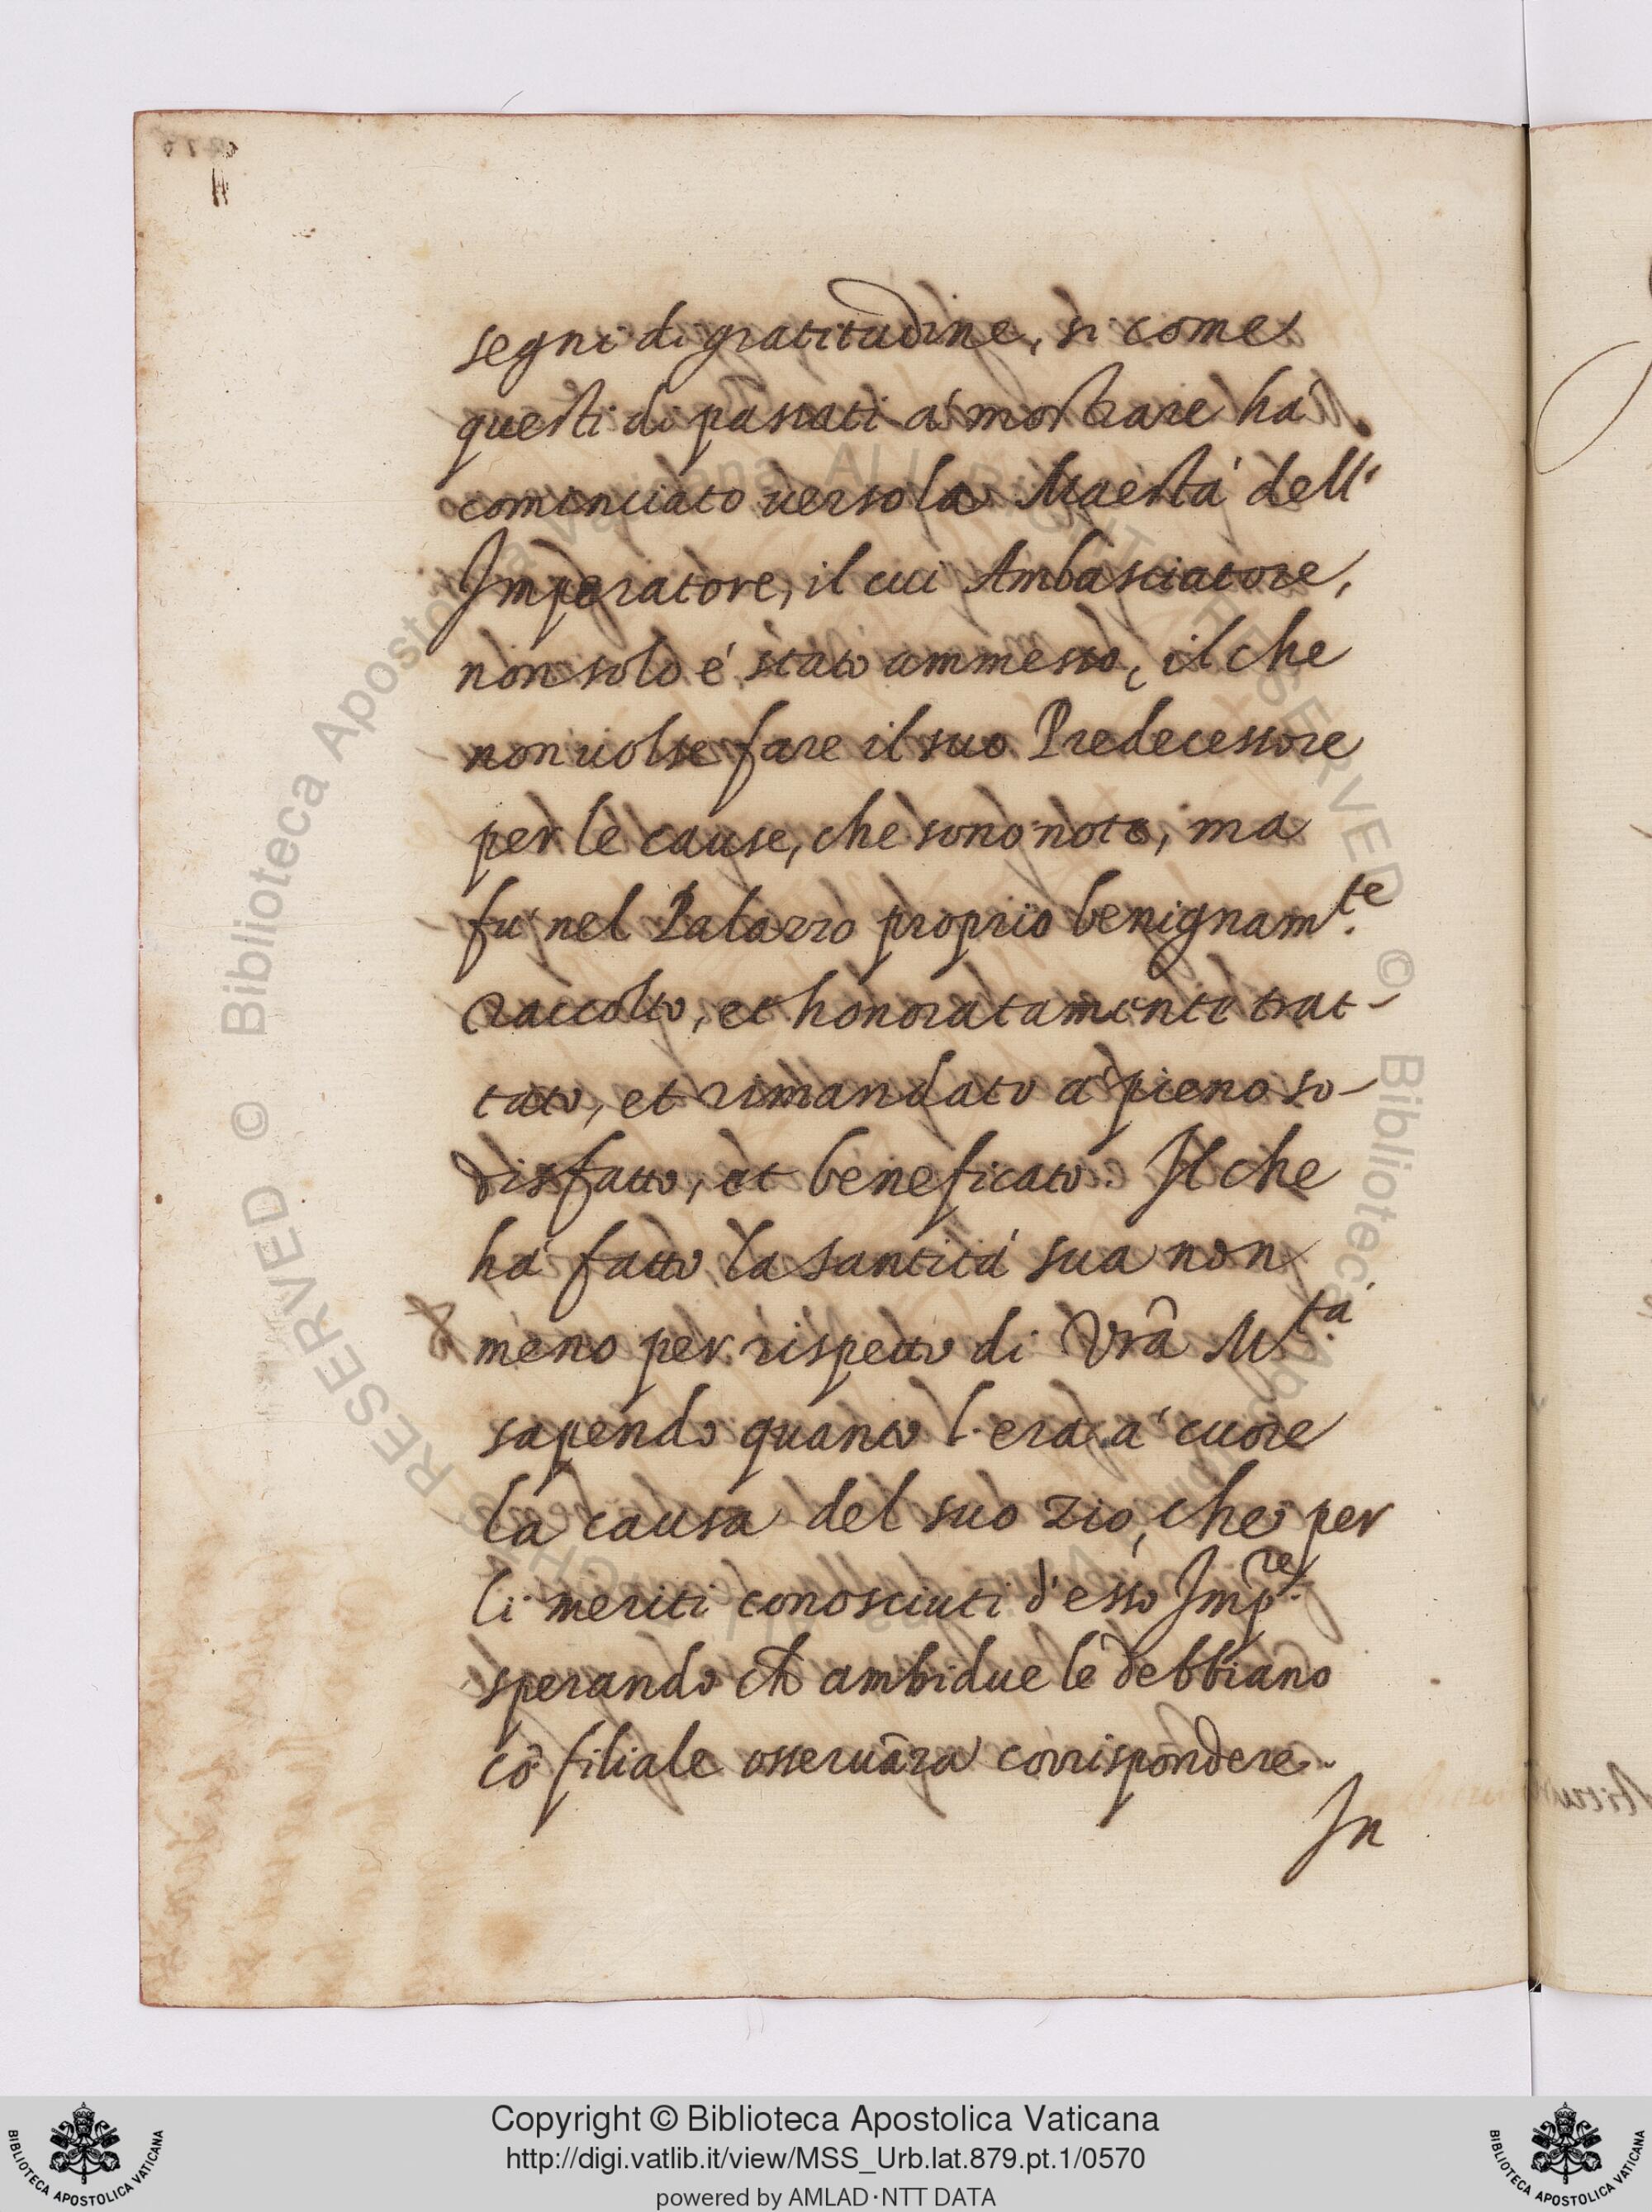 segni di gratitudine, si come
questi dì passati à mostrare hà
cominciato uerso la Maestà dell'
Imperatore, il cui Ambasciatore,
non solo é stato ammesso, il che
non uolse fare il suo Predecessore
per le cause, che sono note, ma
fu nel Palazzo proprio benignam.te
raccolto, et honoratamente trat-
tato, et rimandato à pieno so-
disfatto, et beneficato. Il che
hà fatto la santità sua non
meno per rispetto di Vrã M.tà
sapendo quanto l'era à cuore
la causa del suo zio, che per
li meriti conosciuti d'esso Imp.re
sperando ch ambidue le debbiano
cõ filiale osseruãza corrispondere.
In
© Biblioteca Apostolica Vaticana ALL RIGHTS RESERVED
© Biblioteca Apostolica Vaticana ALL RIGHTS RESERVED
Copyright © Biblioteca Apostolica Vaticana
http://digi.vatlib.it/view/MSS_Urb.lat.879.pt.1/0570
powered by AMLAD·NTT DATA
BIBLIOTECA APOSTOLICA VATICANA
BIBLIOTECA APOSTOLICA VATICANA